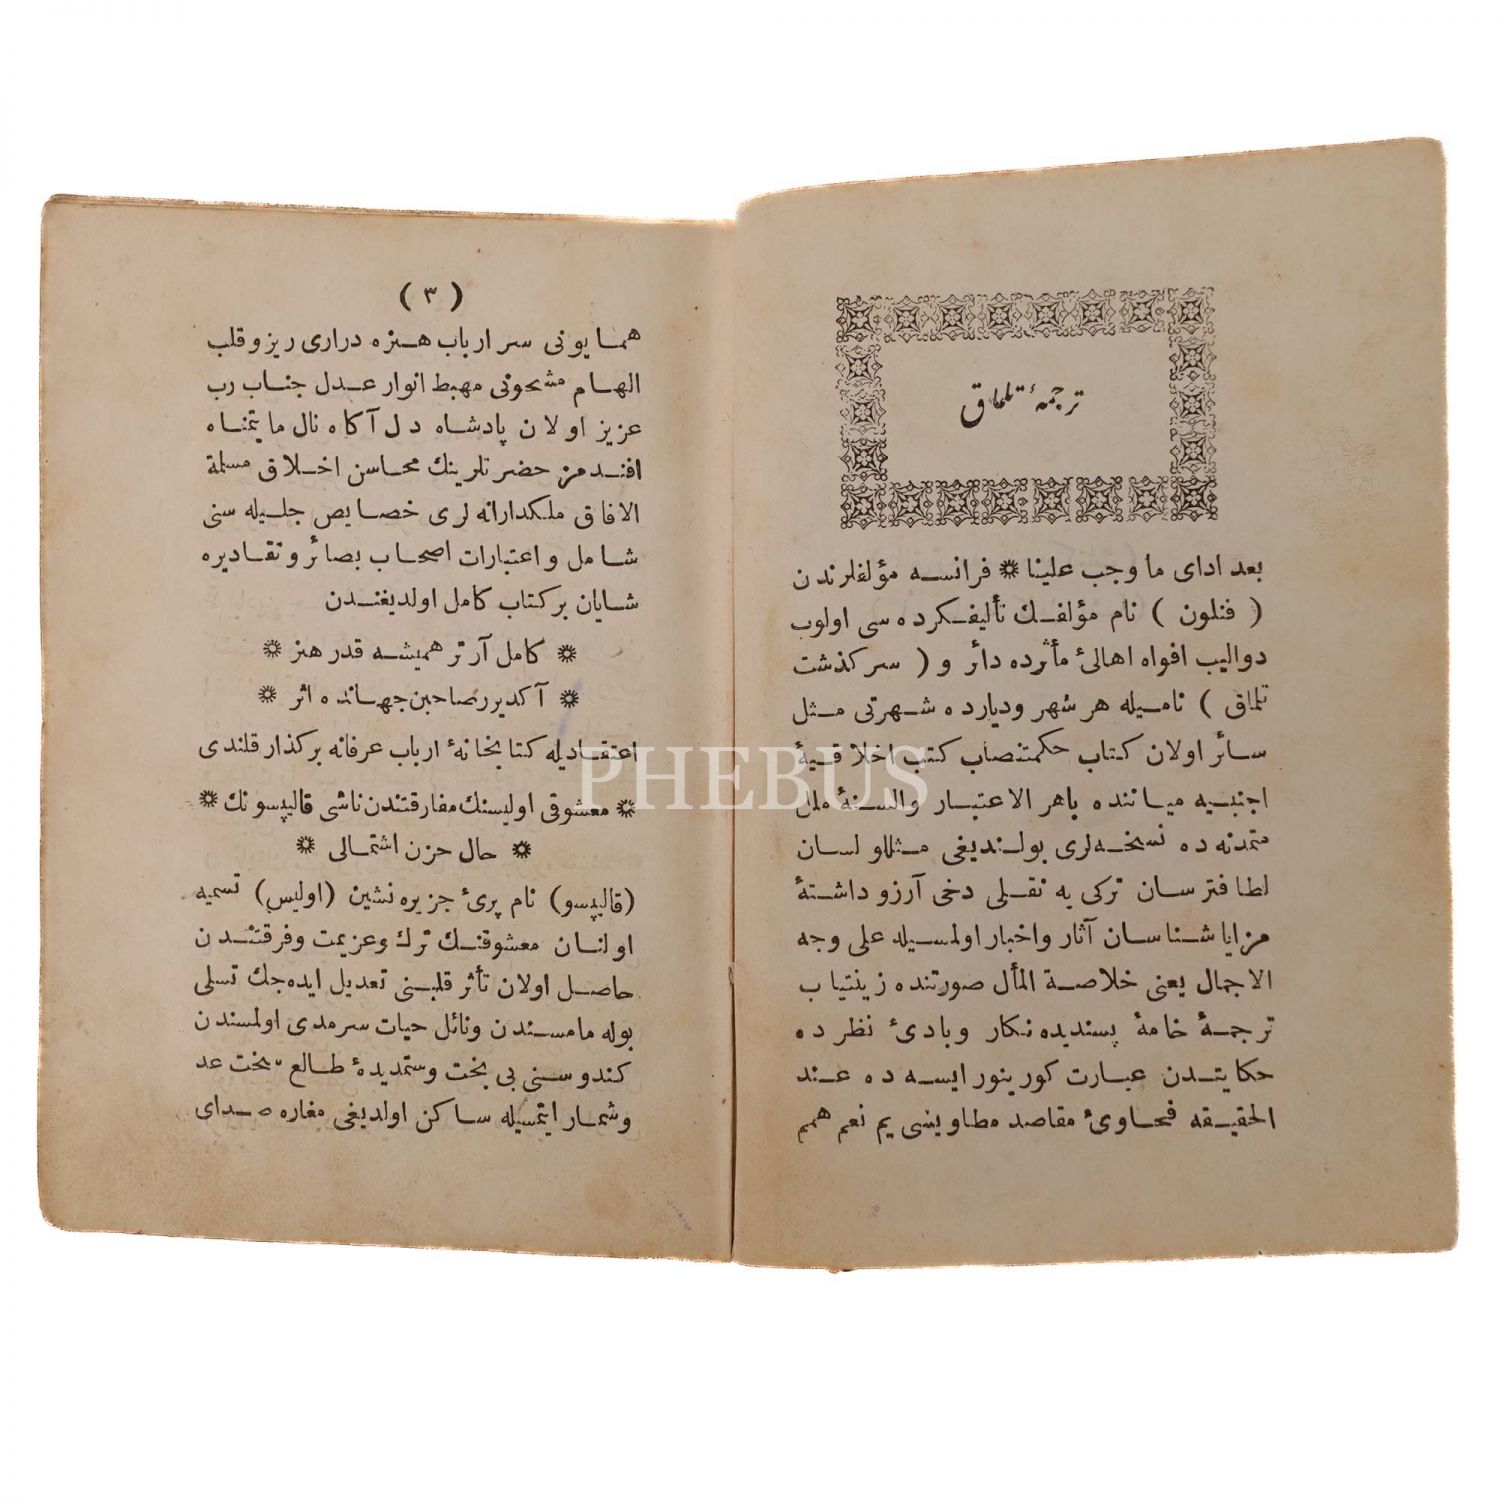 ترجمهٔ تلماق
بعد ادای ما وجب علینا ❊ فرانسه مؤلفلرندن
( فنلون ) نام مؤلفك تألیفکرده سی اولوب
دوالیب افواه اهالیٔ مأثرده دائر و ( سرکذشت
تلماق ) نامیله هر شهر ودیارده شهرتی مثل
سائر اولان کتاب حکمتنصاب کتب اخلاقیهٔ
اجنبیه میاننده باهر الاعتبار والسنهٔ ملل
متمدنه ده نسخه لری بولندیغی مثللو لسان
لطافترسان ترکی یه نقلی دخی آرزو داشتهٔ
مزایا شناسان آثار واخبار اولمسیله علی وجه
الاجمال یعنی خلاصة المأل صورتنده زینتیاب
ترجمهٔ خامهٔ پسندیده نکار وبادیٔ نظرده
حکایتدن عبارت کورینور ایسه ده عند
الحقیقه فحاویٔ مقاصد مطاویسی یم نعم همم
( ٣ )
همایونی سر ارباب هنره دراری ریز وقلب
الهام مشحونی مهبط انوار عدل جناب رب
عزیز اولان پادشاه دل آکاه نال مایتمناه
افندمز حضرتلرینك محاسن اخلاق مسلمة
الافاق ملکدارانه لری خصایص جلیله سنی
شامل واعتبارات اصحاب بصائر وتقادیره
شایان برکتاب کامل اولدیغندن
❊ کامل آرتر همیشه قدر هنر ❊
❊ آکدیرر صاحبن جهانده اثر ❊
اعتقادیله کتابخانهٔ ارباب عرفانه برکذار قلندی
❊ معشوقی اولیسنك مفارقتندن ناشی قالیپسونك ❊
❊ حال حزن اشتمالی ❊
(قالیپسو) نام پریٔ جزیره نشین (اولیس) تسمیه
اولنان معشوقنك ترك وعزیمت وفرقتندن
حاصل اولان تأثر قلبنی تعدیل ایده جك تسلی
بوله مامسندن ونائل حیات سرمدی اولمسندن
کندوسنی بی بخت وستمدیدهٔ طالع سخت عد
وشمار ایتمسیله ساکن اولدیغی مغاره صدای
PHEBUS